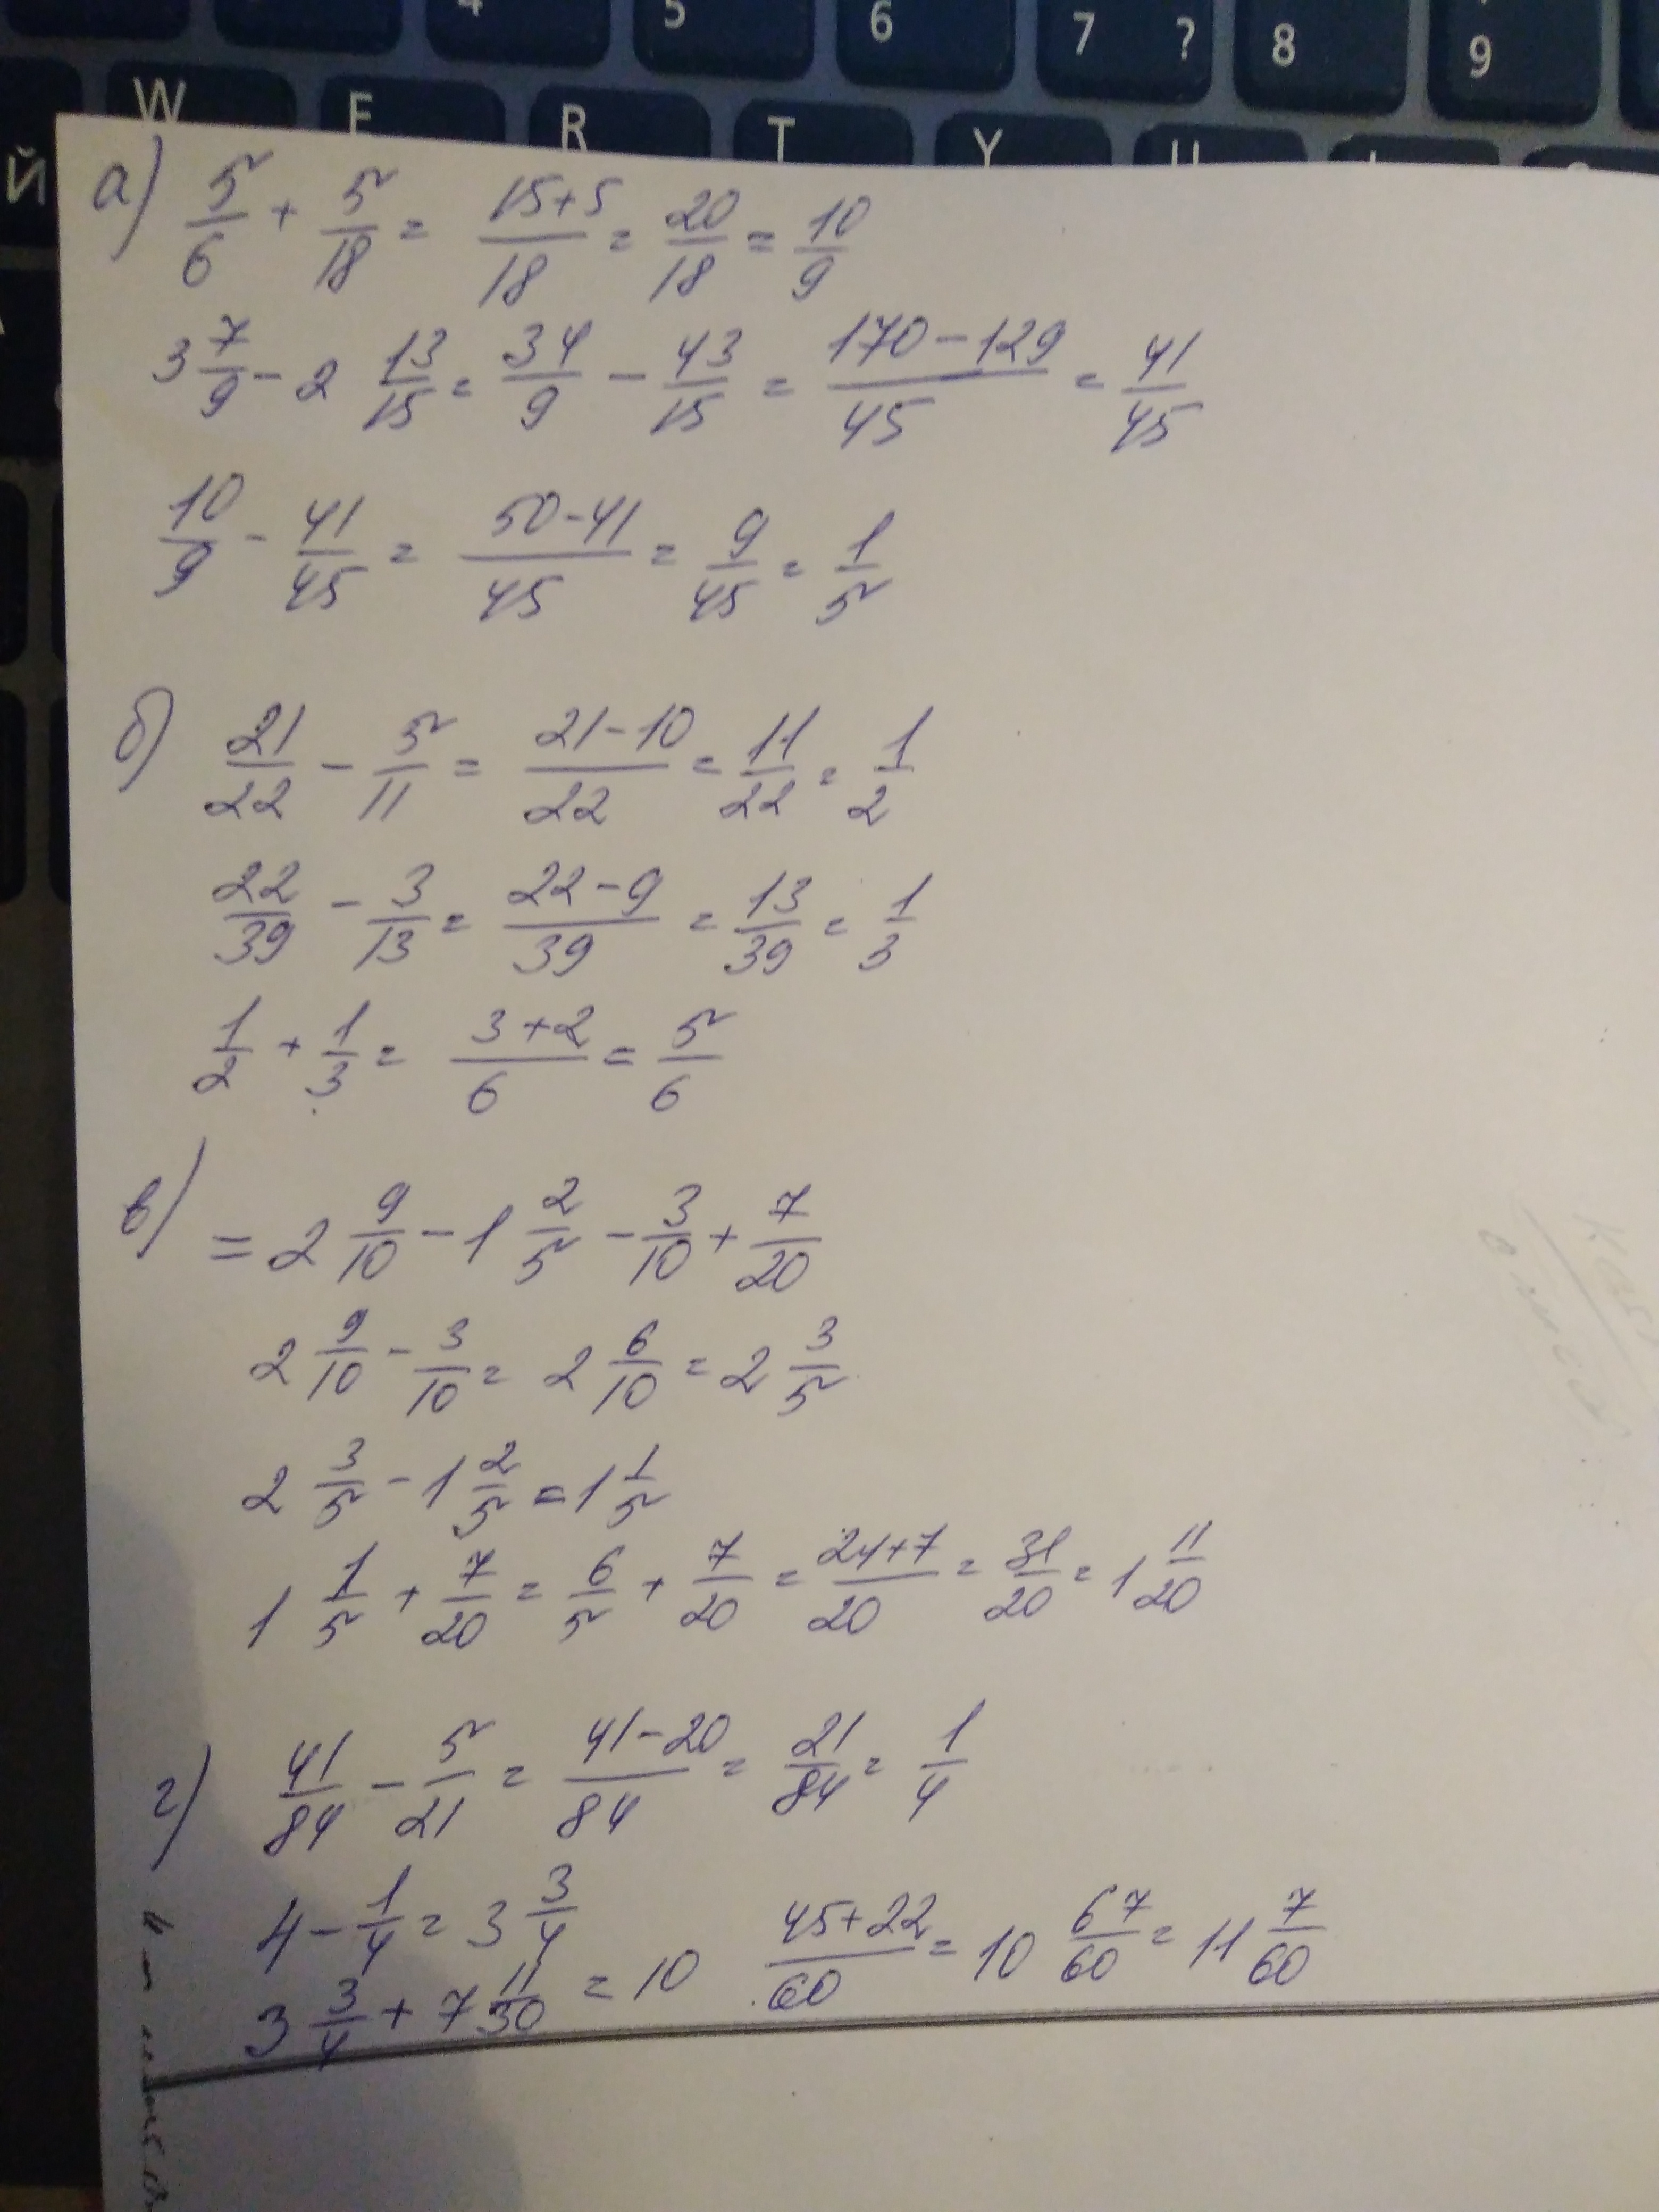 4 5 6 7 ? 8 9
Й W E R T Y U
а) 5/6 + 5/18 = (15+5)/18 = 20/18 = 10/9
3 7/9 - 2 13/15 = 34/9 - 43/15 = (170-129)/45 = 41/45
10/9 - 41/45 = (50-41)/45 = 9/45 = 1/5
б) 21/22 - 5/11 = (21-10)/22 = 11/22 = 1/2
22/39 - 3/13 = (22-9)/39 = 13/39 = 1/3
1/2 + 1/3 = (3+2)/6 = 5/6
в) = 2 9/10 - 1 2/5 - 3/10 + 7/20
2 9/10 - 3/10 = 2 6/10 = 2 3/5
2 3/5 - 1 2/5 = 1 1/5
1 1/5 + 7/20 = 6/5 + 7/20 = (24+7)/20 = 31/20 = 1 11/20
г) 41/84 - 5/21 = (41-20)/84 = 21/84 = 1/4
4 - 1/4 = 3 3/4
3 3/4 + 7 11/30 = 10 (45+22)/60 = 10 67/60 = 11 7/60